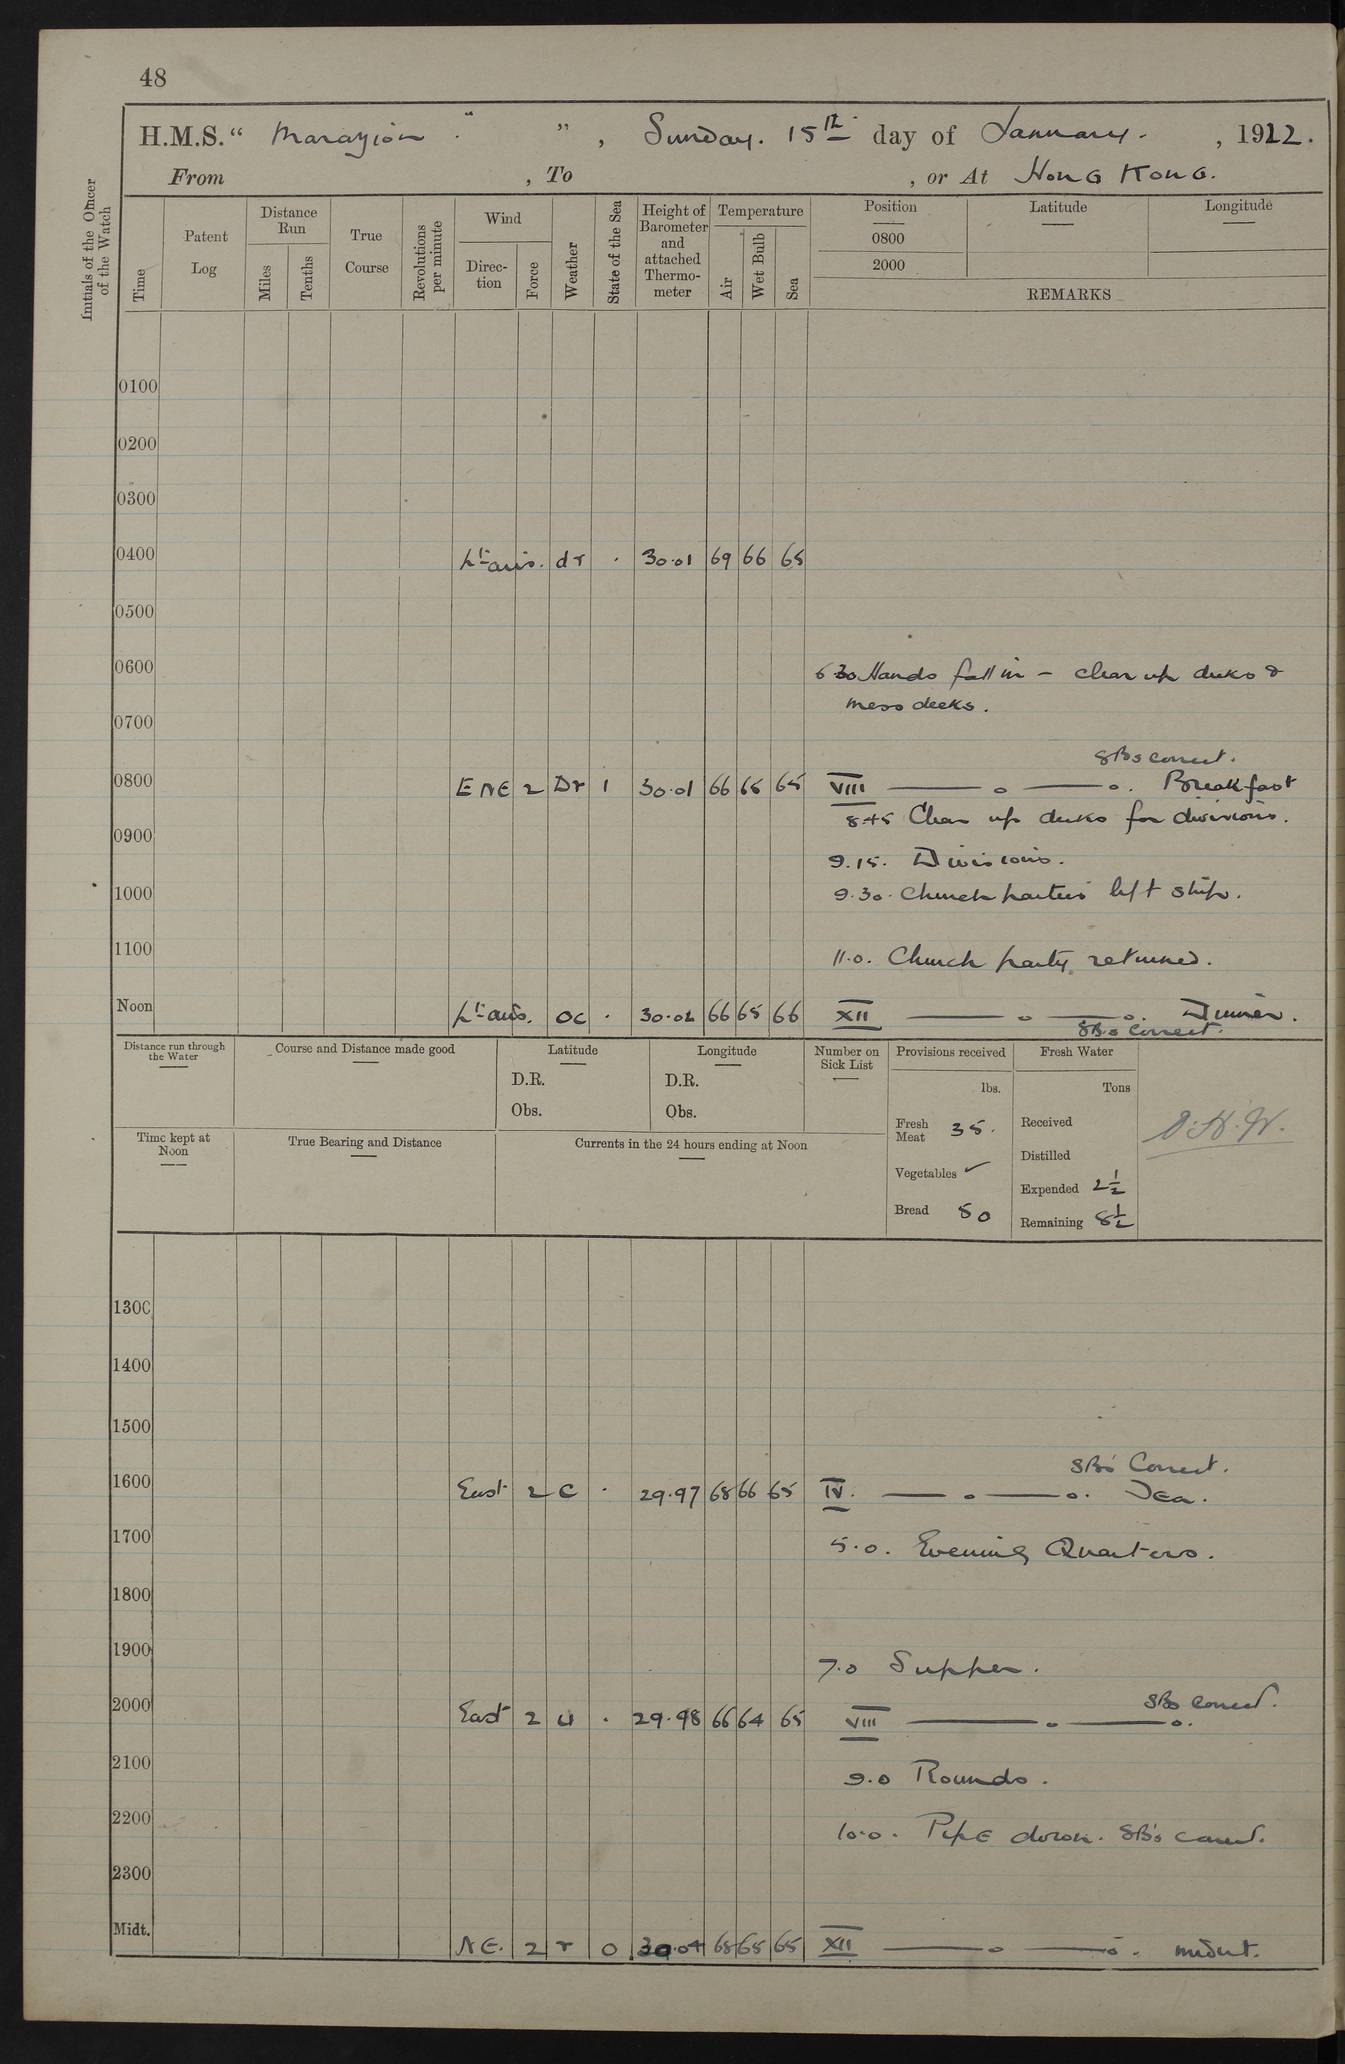 48
H.M.S. “ Marazion ” , Sunday. 15th day of January. , 1922.
From , To , or At Hong Kong.
Initials of the Officer of the Watch
Time
Patent Log
Distance Run
Miles
Tenths
True Course
Revolutions per minute
Wind
Direc- tion
Force
Weather
State of the Sea
Height of Barometer and attached Thermo- meter
Temperature
Air
Wet Bulb
Sea
Position
0800
2000
Latitude
Longitude
REMARKS
0100
0200
0300
0400 Lt airs. dr . 30.01 69 66 65
0500
0600
6 30 Hands fall in - clear up decks &
mess decks.
0700
SBs correct.
0800 ENE 2 Dr 1 30.01 66 65 65 VIII — o — o. Breakfast
8.45 Clear up decks for divisions.
0900
9.15. Divisions.
1000 9.30. Church parties left ship.
1100 11.0. Church party returned.
Noon Lt airs. oc . 30.02 66 65 66 XII — o — o. Dinner.
SBs Correct.
Distance run through the Water
Course and Distance made good
Latitude
D.R.
Obs.
Longitude
D.R.
Obs.
Number on Sick List
Provisions received
lbs.
Fresh Meat 35.
Vegetables ✓
Bread 50
Fresh Water
Tons
Received
Distilled
Expended 2 1/2
Remaining 8 1/2
Time kept at Noon
True Bearing and Distance
Currents in the 24 hours ending at Noon
1300
1400
1500
SBs Correct.
1600 East 2 c . 29.97 68 66 65 IV. — o — o. Tea.
1700 5.0. Evening Quarters.
1800
1900
7.0 Supper.
SBs correct.
2000 East 2 . 29.98 66 64 65 VIII — o — o.
2100 9.0 Rounds.
2200 10.0. Pipe down. SB's correct.
2300
Midt. NE. 2 r 0 30.04 65 65 XII — o — o. midnt.